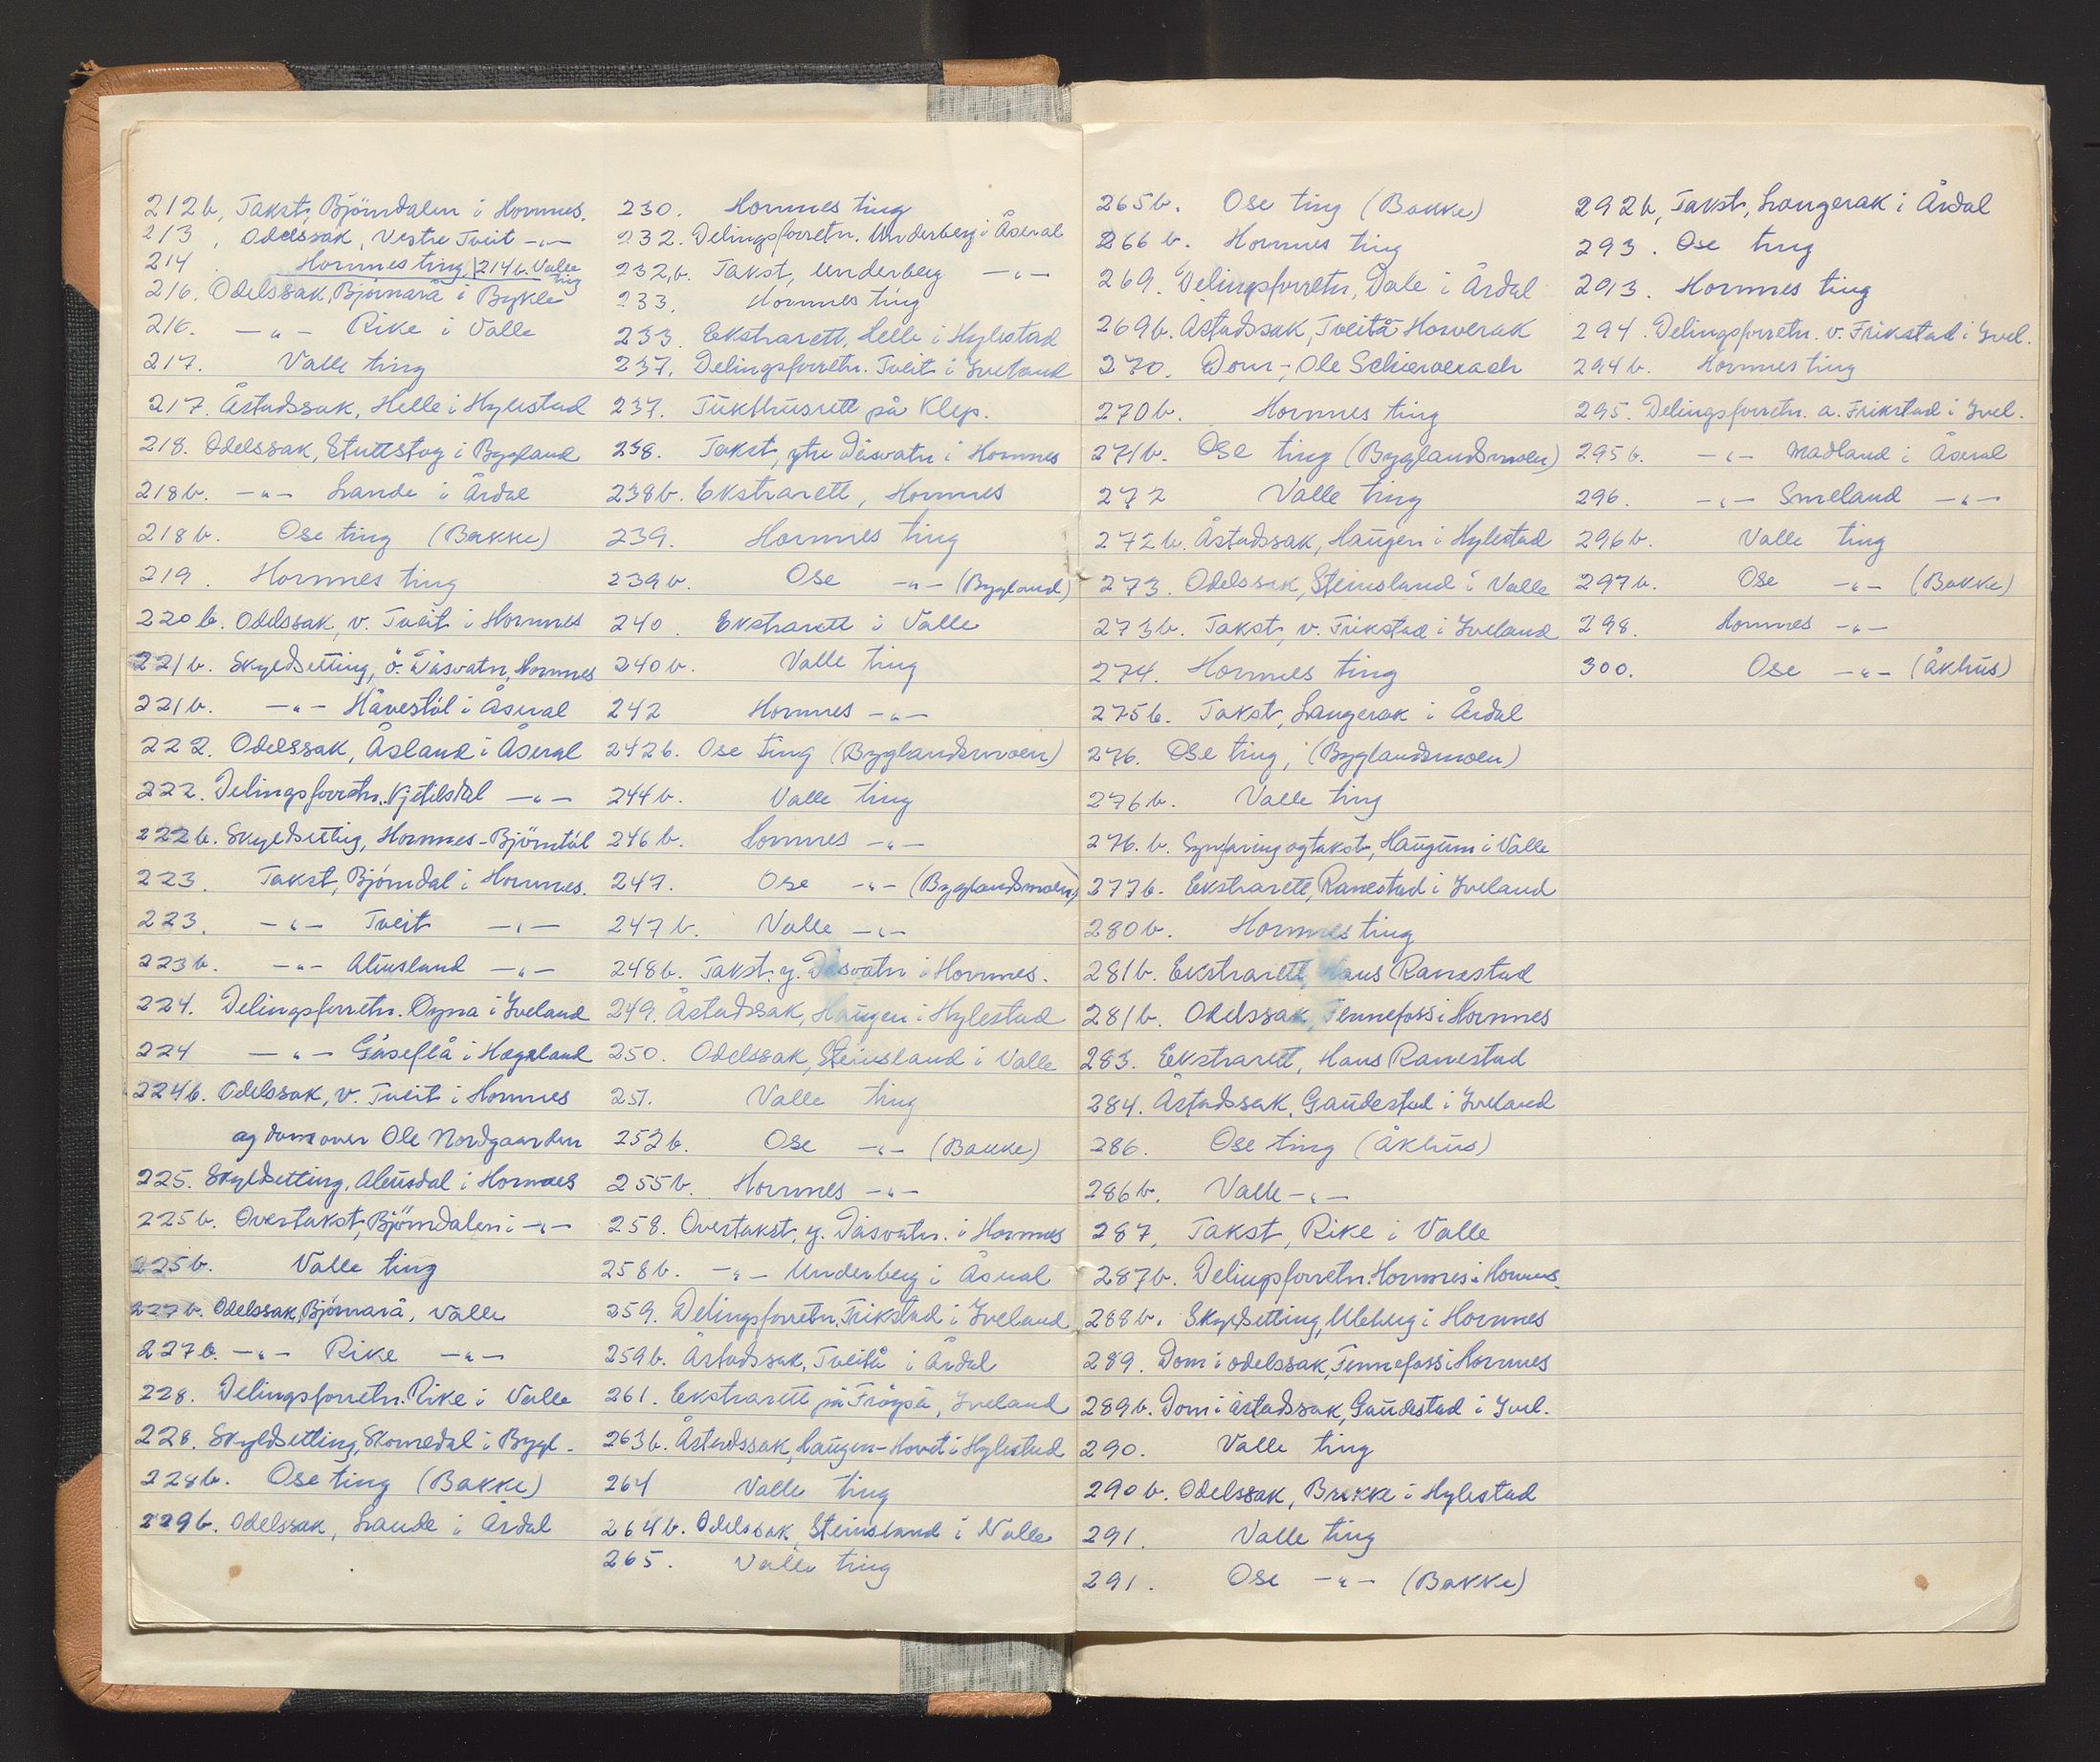 212b, Takst, Björndalen i Hornnes.
213, Odelssak, Vestre Tveit -"-
214 Hornnes ting, 214b. Valle ting
216. Odelssak, Björnarå i Bykle
216. -"- Rike i Valle
217. Valle ting
217. Åstadssak, Helle i Hylestad
218. Odelssak, Stuttstog i Bygland
218b. -"- Lande i Årdal
218b. Ose ting (Bakke)
219. Hornnes ting
220b. Odelssak, v. Tveit i Hornnes
221b. Skyldsetting, ö. Dåsvatn, Hornnes
221b. -"- Håvestöl i Åseral
222. Odelssak, Åsland i Åseral
222. Delingsforretn. Kjetilsdal -"-
222b. Skyldsetting, Hornnes-Björntöl
223. Takst, Björndal i Hornnes.
223. -"- Tveit -"-
223b. -"- Aleusland -"-
224. Delingsforretn. Øyna i Iveland
224 -"- Gåseflå i Hægeland
224b. Odelssak, v. Tveit i Hornnes
og dom over Ole Nordgaarden
225. Skyldsetting, Aleusdal i Hornnes
225b. Overtakst, Björndalen i -"-
225b. Valle ting
227b. Odelssak, Björnarå, Valle
227b. -"- Rike -"-
228. Delingsforretn. Rike i Valle
228. Skyldsetting, Skomedal i Bygl.
228b. Ose ting (Bakke)
229b. Odelssak, Lande i Årdal
230. Hornnes ting
232. Delingsforretn. Underberg i Åseral
232,b. Takst, Underberg -"-
233. Hornnes ting
233. Ekstrarett, Helle i Hylestad
237. Delingsforretn. Tveit i Iveland
237. Tukthusrett på Klep.
238. Takst, ytre Dåsvatn i Hornnes
238b. Ekstrarett, Hornnes
239. Hornnes ting
239b. Ose -"- (Bygland)
240. Ekstrarett i Valle
240b. Valle ting
242 Hornnes -"-
242b. Ose ting (Byglandsmoen)
244b. Valle ting
246b. Hornnes -"-
247. Ose -"- (Byglandsmoen)
247b. Valle -"-
248b. Takst. y. Dåsvatn i Hornnes.
249. Åstadssak, Haugen i Hylestad
250. Odelssak, Steinsland i Valle
251. Valle ting
252b. Ose -"- (Bakke)
255b. Hornnes -"-
258. Overtakst, y. Dåsvatn. i Hornnes
258b. -"- Underberg i Åseral
259. Delingsforretn, Frikstad i Iveland
259b. Åstadssak, Tveitå i Årdal
261. Ekstrarett på Frøyså, Iveland
263b. Åstadssak, Haugen-Hovet i Hylestad
264 Valle ting
264b. Odelssak, Steinsland i Valle
265. Valle ting
265b. Ose ting (Bakke)
266b. Hornnes ting
269. Delingsforretn, Dale i Årdal
269b. Åstadssak, Tveitå Horverak
270. Dom-, Ole Schierverach
270b. Hornnes ting
271b. Ose ting (Byglandsmoen)
272 Valle ting
272b. Åstadssak, Haugen i Hylestad
273. Odelssak, Steinsland i Valle
273b. Takst, v. Frikstad i Iveland
274. Hornnes ting
275b. Takst, Langerak i Årdal
276. Ose ting, (Byglandsmoen)
276b. Valle ting
276.b. Synfaring og takst, Haugum i Valle
277b. Ekstrarett, Ranestad i Iveland
280b. Hornnes ting
281b. Ekstrarett, Hans Ranestad
281b. Odelssak, Fennefoss i Hornnes
283. Ekstrarett, Hans Ranestad
284. Åstadssak, Gaudestad i Iveland
286. Ose ting (Åkhus)
286b. Valle -"-
287, Takst, Rike i Valle
287b. Delingsforretn. Hornnes i Hornnes.
288b. Skyldsetting, Uleberg i Hornnes
289. Dom i odelssak, Fennefoss i Hornnes
289b. Dom i åstadssak, Gaudestad i Ivel.
290. Valle ting
290b. Odelssak, Brokke i Hylestad
291. Valle ting
291. Ose -"- (Bakke)
292b, Takst, Langerak i Årdal
293. Ose ting
293. Hornnes ting
294. Delingsforretn. v. Frikstad i Ivel.
294b. Hornnes ting
295. Delingsforretn. a. Frikstad i Ivel.
295b. -"- Madland i Åseral
296. -"- Smeland -"-
296b. Valle ting
297b. Ose -"- (Bakke)
298. Hornnes -"-
300. Ose -"- (Åkhus)